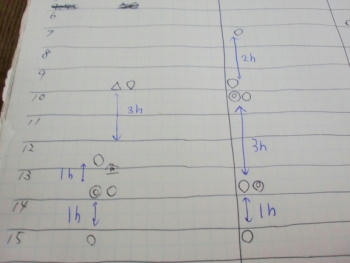 6
7
8
2h
9
10
3h
11
12
3h
13
1h
14
1h
1h
15